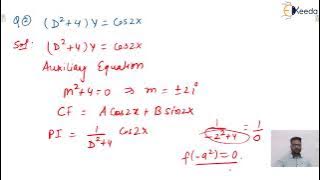 Q② (D²+4)Y = Cos2x
Sol: (D²+4)Y = Cos2x
Auxiliary Equation
m²+4=0 ⇒ m = ±2i
CF = A Cos2x + B Sin2x
PI = 1/(D²+4) Cos2x
1/(-2²+4) = 1/0
f(-a²)=0.
Ekeeda